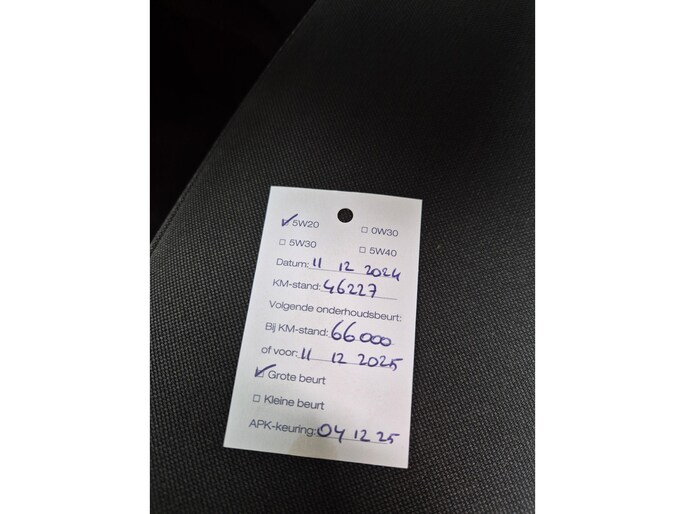 ☑ 5W20 ☐ 0W30
☐ 5W30 ☐ 5W40
Datum: 11 12 2024
KM-stand: 46227
Volgende onderhoudsbeurt:
Bij KM-stand: 66000
of voor: 11 12 2025
☑ Grote beurt
☐ Kleine beurt
APK-keuring: 04 12 25